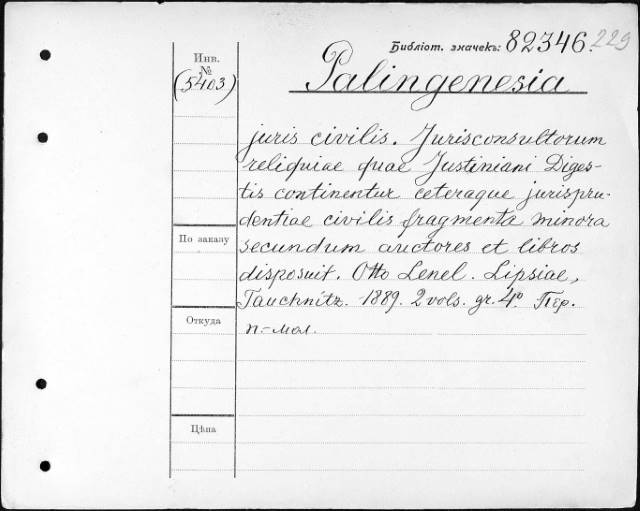 Библіот. значекъ: 82346. 229
Инв.
№
(5403)
Palingenesia
juris civilis. Jurisconsultorum
reliquiae quae Justiniani Diges-
tis continentur ceteraque jurispru-
dentiae civilis fragmenta minora
secundum auctores et libros
disposuit. Otto Lenel. Lipsiae,
Tauchnitz. 1889. 2 vols. gr. 4º. Пер.
п-мол.
По заказу
Откуда
Цѣна